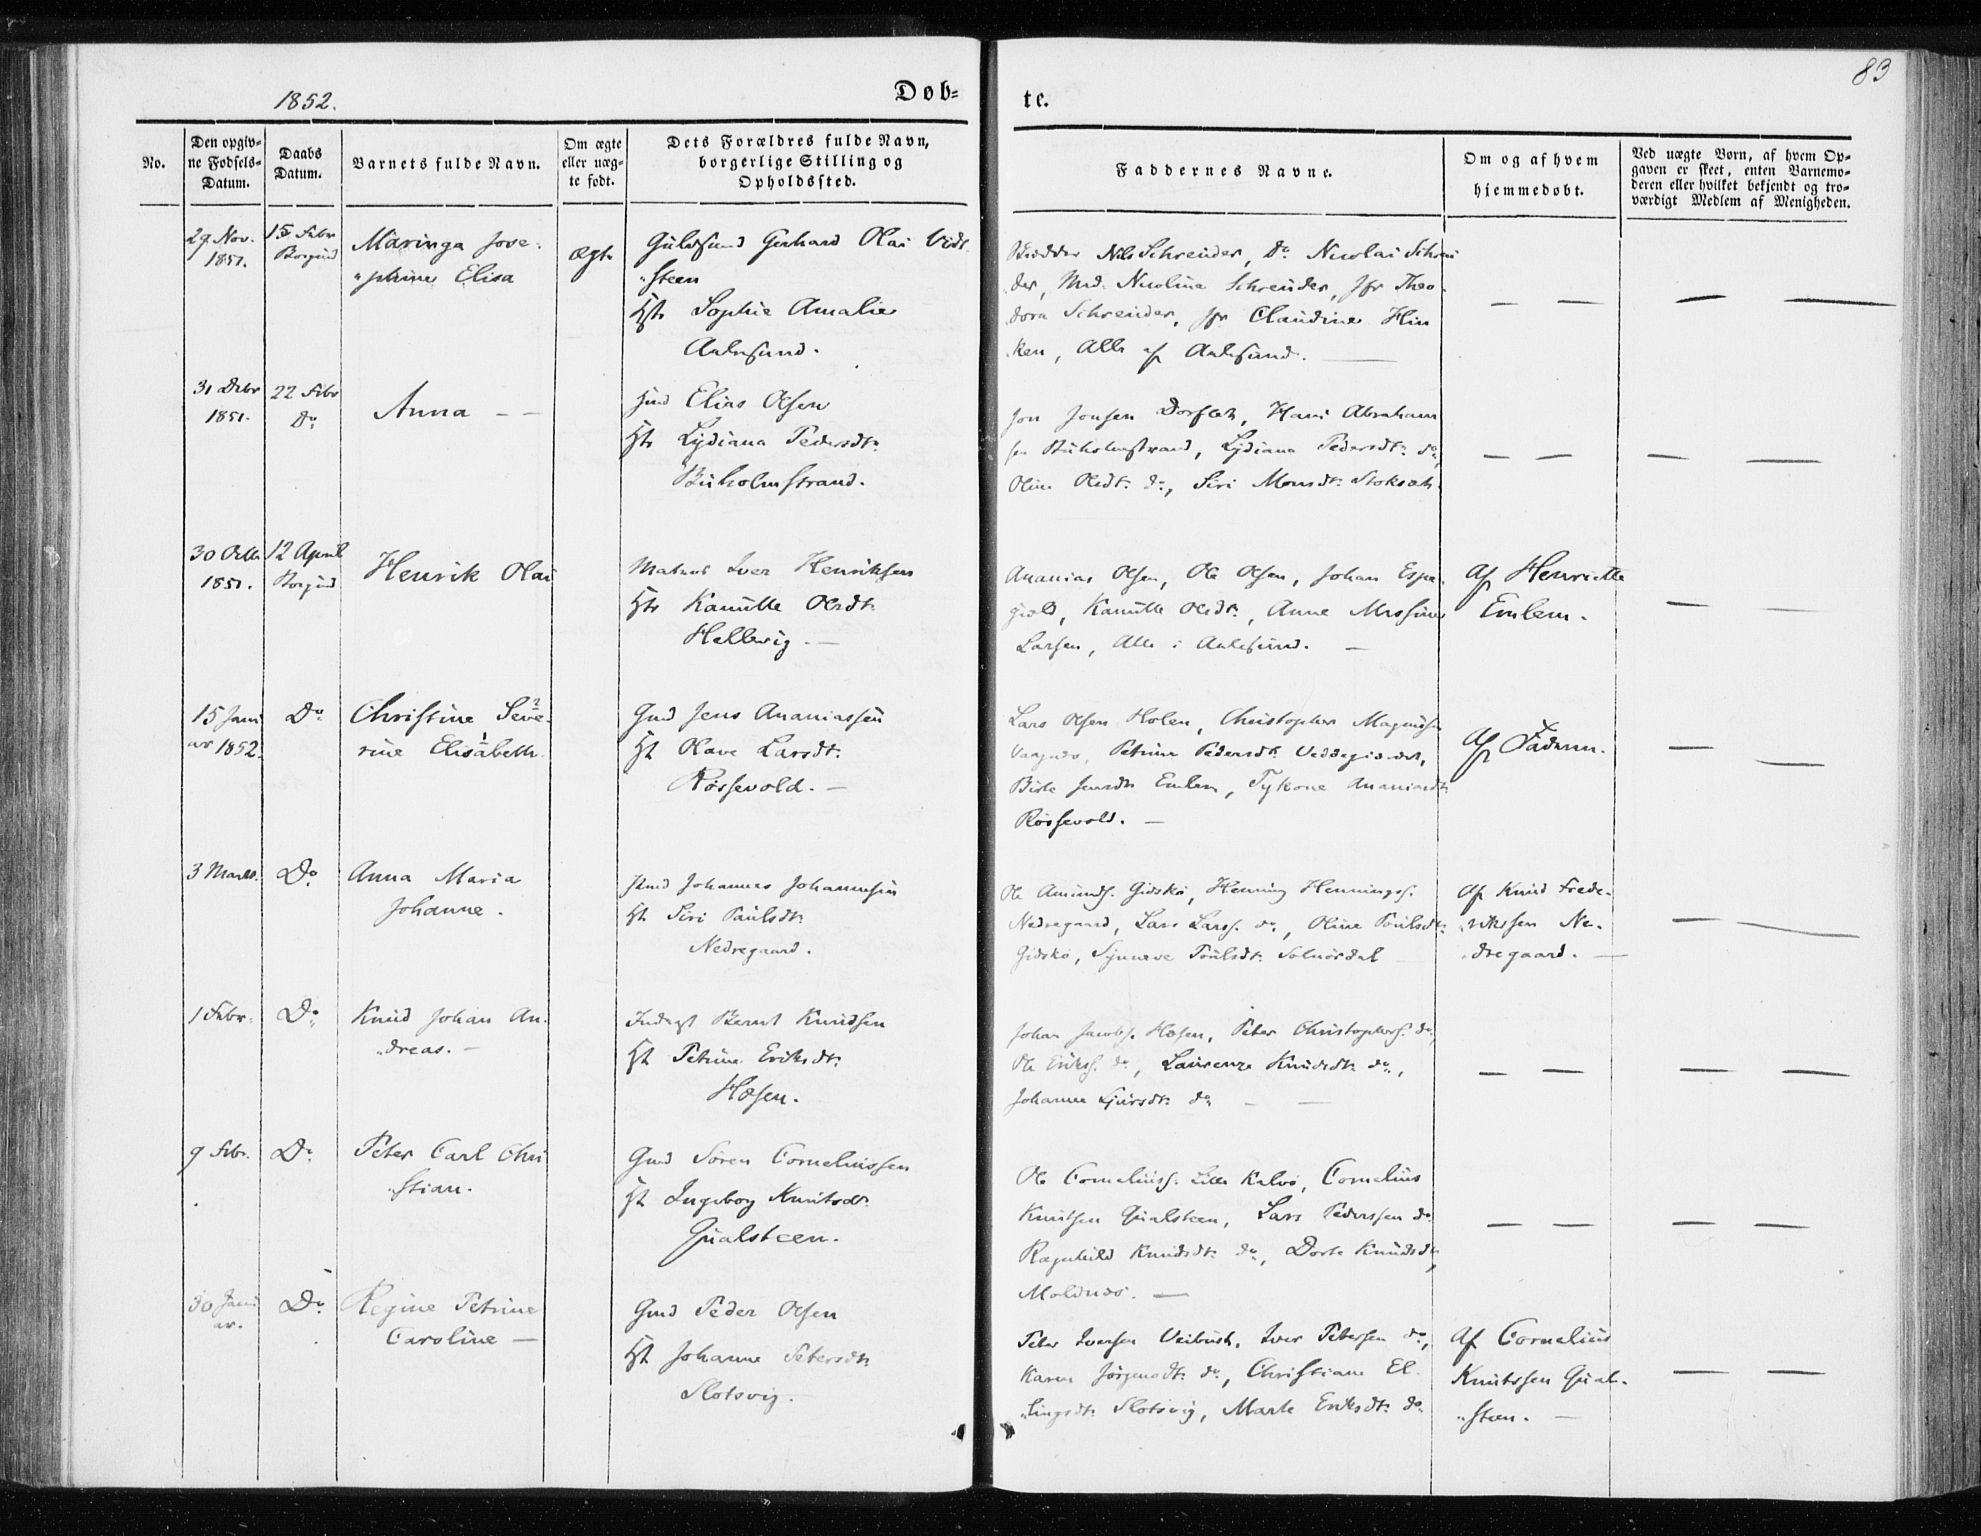 83
1852.
Døb=
te.
No.
Den opgiv-
ne Fødsels-
Datum.
Daabs
Datum.
Barnets fulde Navn.
Om ægte
eller uæg-
te født.
Dets Forældres fulde Navn,
borgerlige Stilling og
Opholdssted.
Faddernes Navne.
Om og af hvem
hjemmedøbt.
Ved uægte Børn, af hvem Op-
gaven er skeet, enten Barnemo-
deren eller hvilket bekjendt og tro-
værdigt Medlem af Menigheden.
29 Nov.
1851.
15 Febr
Borgund
Maringa Jose-
"phine Elisa
ægte
Gerhard Olai Vid
"steen
Hst. Sophie Amalie
Aalesund.
Nils Schreuder, Do Nicolai Schreu
der, Md. Nicoline Schreuder, Jfr Theo-
dora Schreuder, Jfr Claudine Hin
ken, Alle af Aalesund. —
31 Debr
1851.
22 Febr
Do
Anna — —
Hmd Elias Olsen
Hst Lydiana Pedersdtr
Buholmstrand.
Jon Jonsen, Hans Abraham
sen Buholmstrand, Lydiana Pedersdtr do,
Oline Olsdtr do, Siri Monsdtr
30 Octbr
1851.
12 April
Borgund
Henrik Olai
Matros Iver Henriksen
Hst Kanutte Olsdtr
Hellevig. —
Ananias Olsen, Ole Olsen, Johan Espe-
giold, Kanutte Olsdtr, Anne
Larsen, Alle i Aalesund. —
Af Henriette
Emlem.
15 Janu
ar 1852.
Do
Christine Seve-
rine Elisabeth
Gmd Jens Ananiassen
Hst Olave Larsdtr
Røssevold. —
Lars Olsen Holen, Christopher Magnus
Petrine Pedersdtr
Jensdtr Emlem, Ananiasdtr
Røssevold. —
Af Faderen.
3 Marts.
Do
Anna Maria
Johanne.
Johannes Johannesen
Hst Siri Paulsdtr
Nedregaard.
Ole Amunds. Gidskø, Henning Hennings.
Nedregaard, Lars Larss. do, Oline Paulsdtr
Gidskø, Synneve Paulsdtr Solnørdal
Af Knud Frede-
"riksen Ne-
"dregaard. —
1 Febr.
Do
Knud Johan An-
"dreas. —
Inderst Bernt Knudsen
Hst Petrine Eriksdtr
Hæsen.
Johan Jacobs. Hæsen, Peter Christophers. do,
Ole Eriks. do, Laurenze Knudsdtr do,
Johanne do — —
9 Febr.
Do
Peter Carl Chri
"stian.
Gmd Søren Corneliussen
Hst Ingeborg Knutsdtr
Gualsteen.
Ole Corneliuss. Lille Kalvø, Cornelius
Knutsen Gualsteen, Lars Pederssen do
Ragnhild Knudsdtr do, Dorte Knudsdtr,
Moldnæs. —
30 Janu
ar.
Do
Regine Petrine
Caroline —
Gmd Peder Olsen
Hst Johanne Petersdtr
Slotsvig.
Peter Iversen Veibust, Iver Petersen do,
Karen Jørgensdtr do, Christiane El-
"lingsdtr Slotsvig, Marte Eriksdtr do
Af Cornelius
Knutssen Gual-
"steen. —